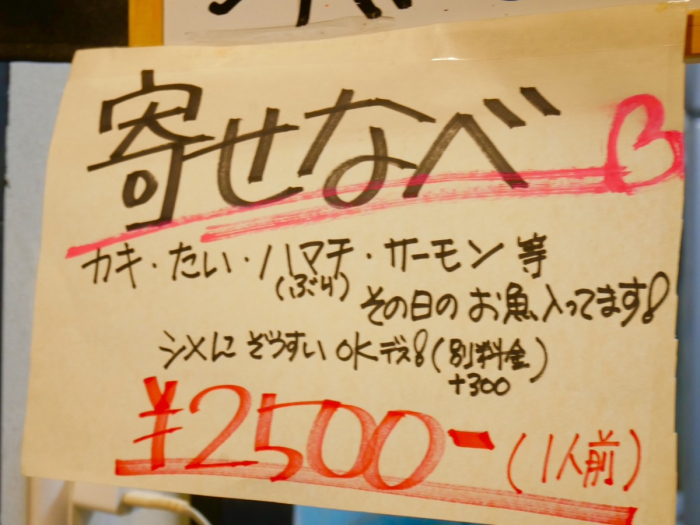 寄せなべ
カキ・たい・ハマチ・サーモン 等
(ぶり)
その日の お魚入ってます!
シメに ぞうすい OKデス!(別料金)
+300
¥2500-(1人前)